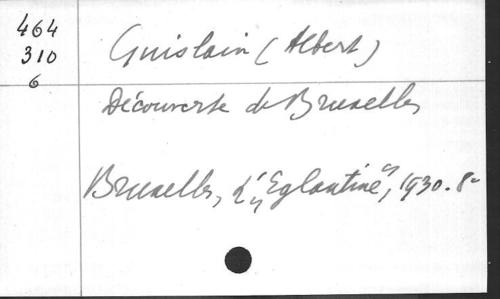 464
310
6
Guislain (Albert)
Découverte de Bruxelles
Bruxelles, L'„Eglantine", 1930. 8°